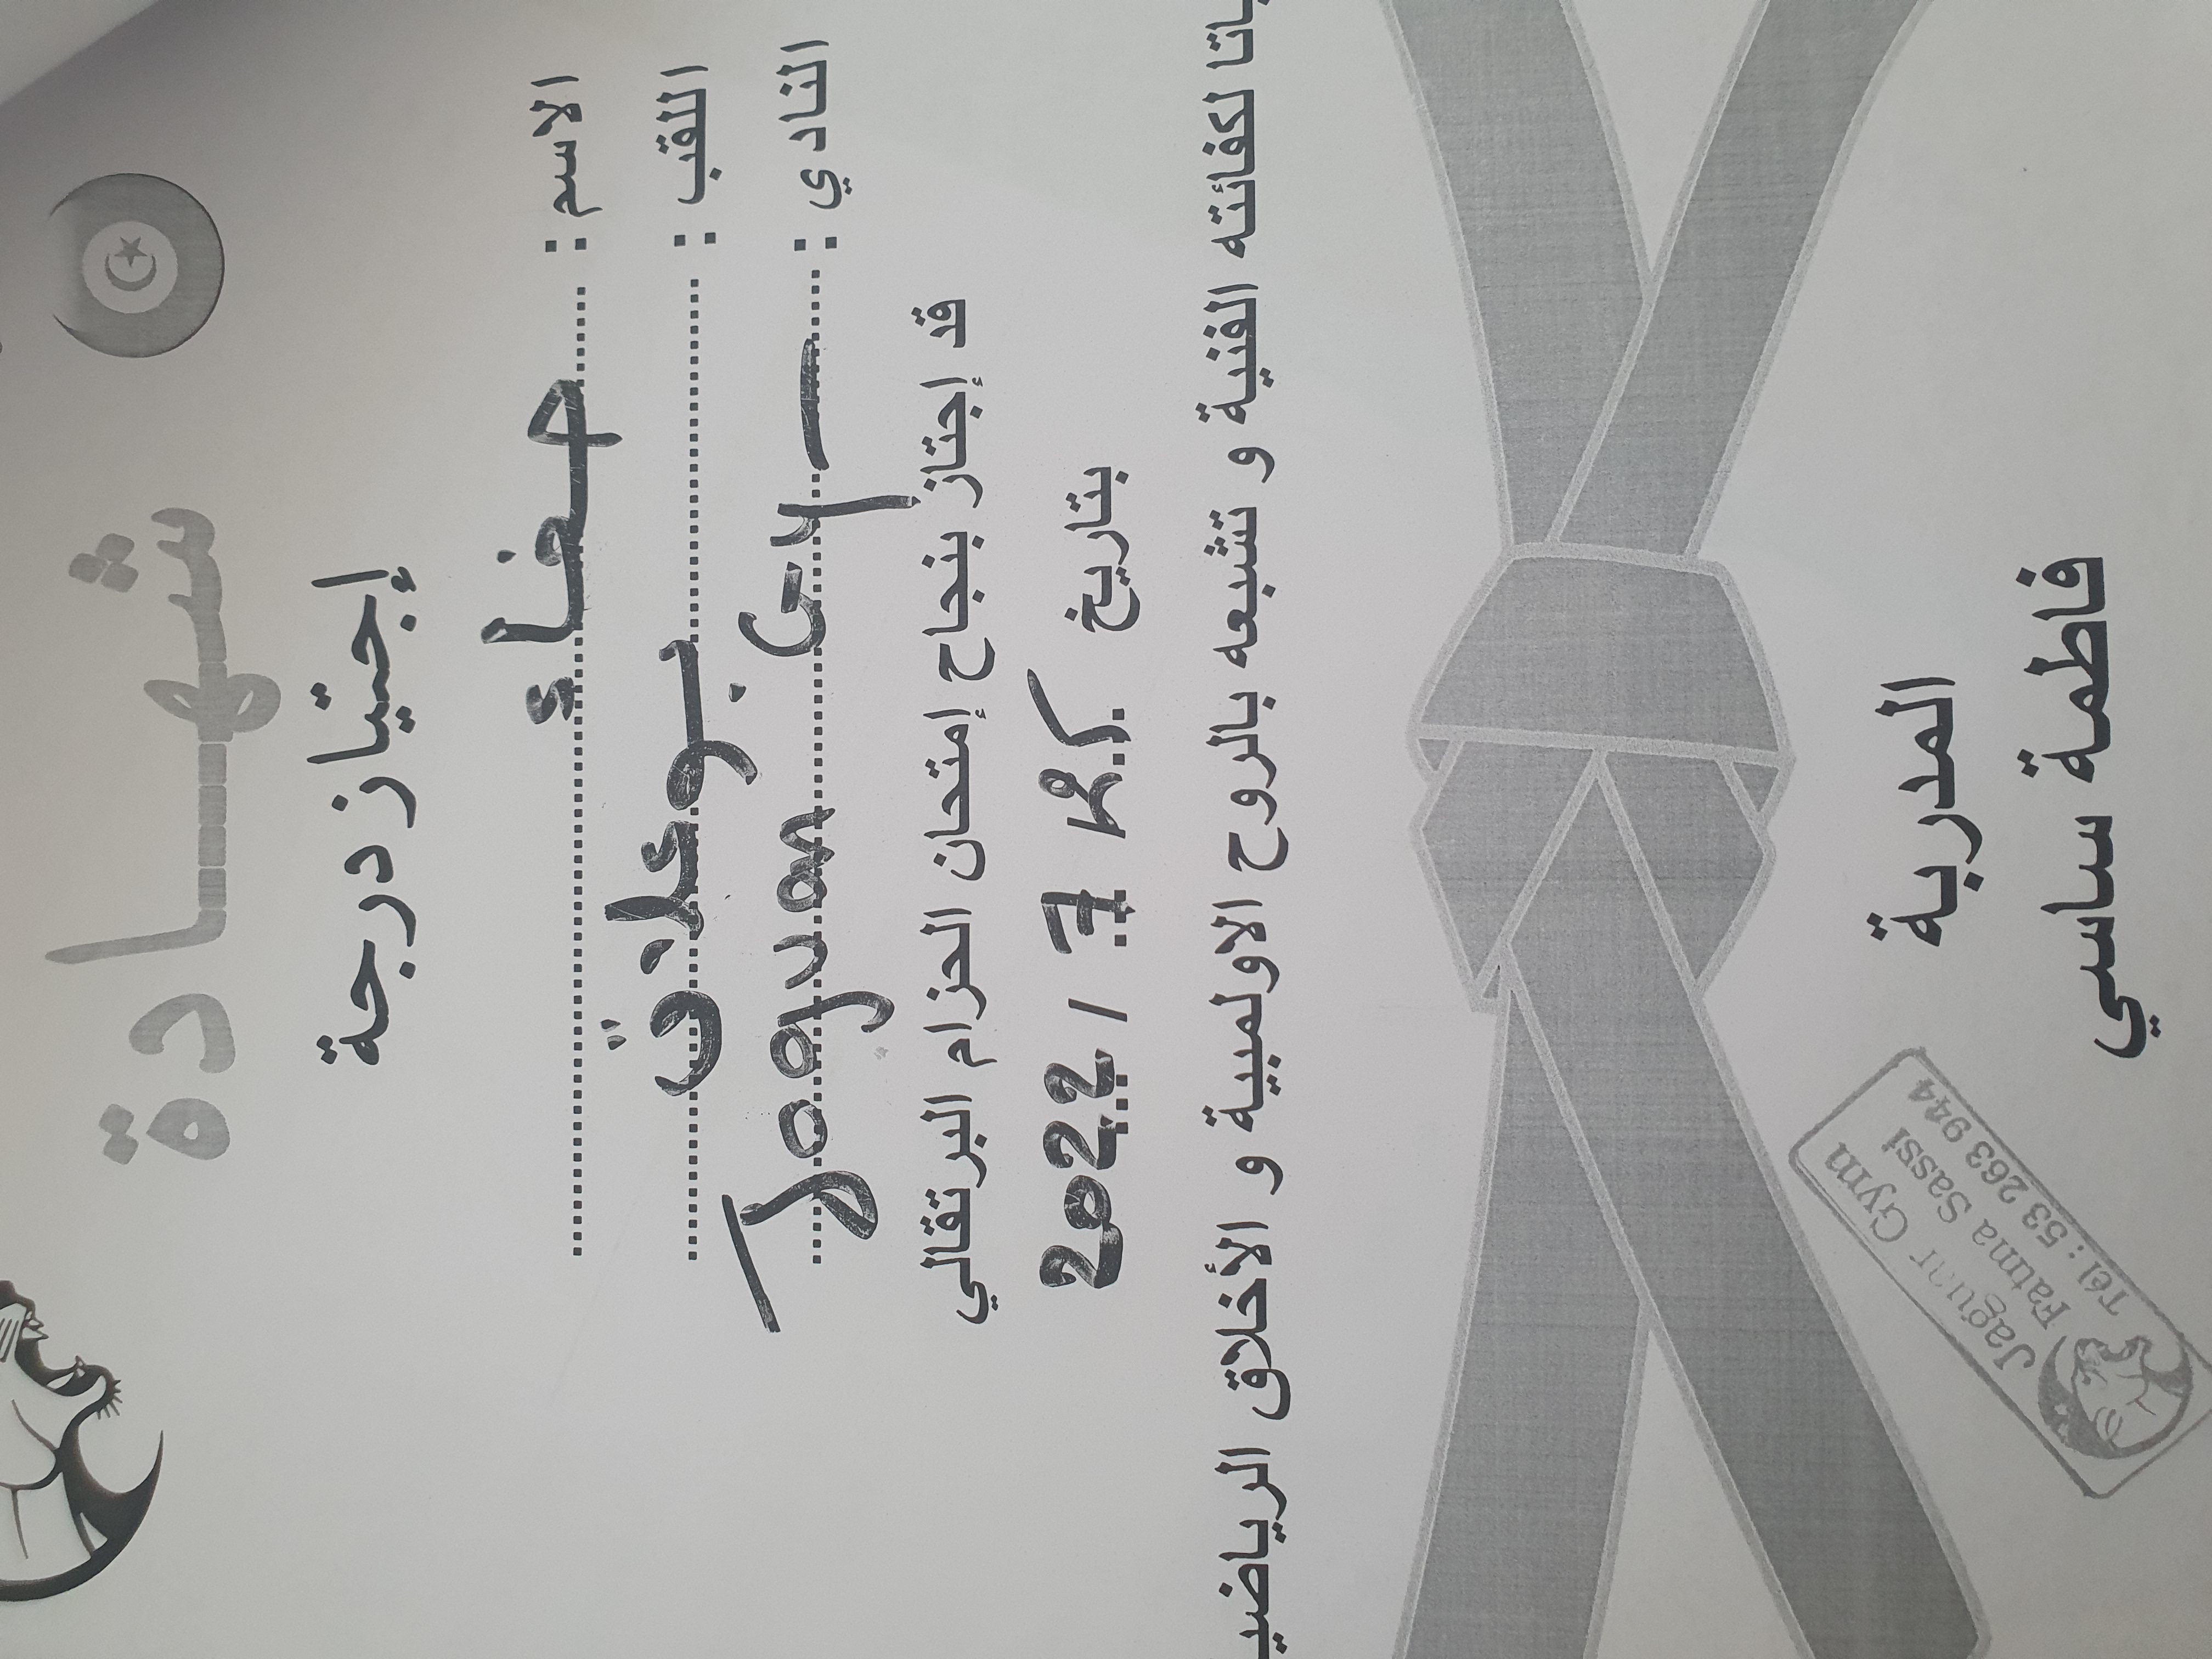 شهادة
إجتياز درجة
الاسم : صفاء
اللقب : بوعلاق
النادي : Jaguar Gym
قد إجتاز بنجاح إمتحان الحزام البرتقالي
بتاريخ 2022 / 7
لكفائته الفنية و تشبعه بالروح الاولمبية و الأخلاق
المدربة
فاطمة ساسي
Jaguar Gym
Fatma Sassi
Tél : 53 263 944